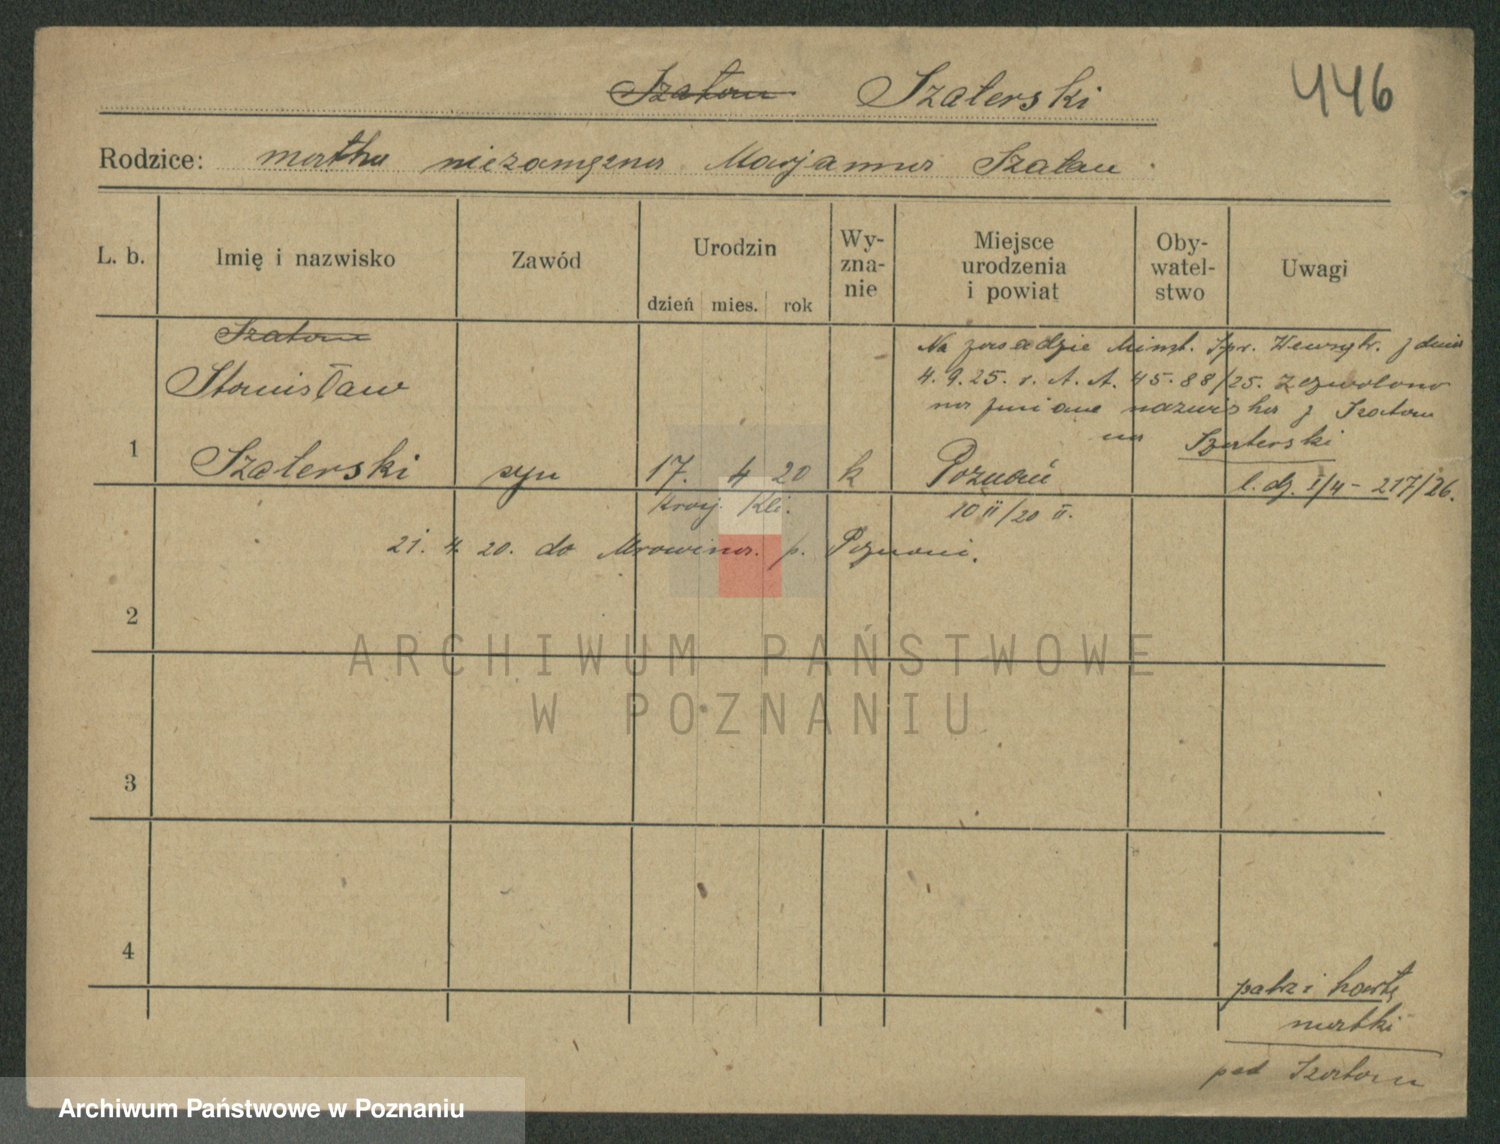 Szatan Szaterski
446
Rodzice: matka niezamężna Marjanna Szatan
L. b. Imię i nazwisko Zawód Urodzin dzień mies. rok Wy-zna-nie Miejsce urodzenia i powiat Oby-watel-stwo Uwagi
Szatan
Na zasadzie Minst. Spr. Wewnętr. z dnia
Stanisław
4.9.25. r. A. A. 45.88/25. zezwolono
na zmianę nazwiska z Szatan
na Szaterski
1 Szaterski syn 17. 4 20 k Poznań l. dz. I/4 - 217/26.
10 II/20 II.
21. 4. 20. do Mrowina p. Poznani.
2
ARCHIWUM PAŃSTWOWE
W POZNANIU
3
4
patrz i kartę
matki
pod Szatan
Archiwum Państwowe w Poznaniu